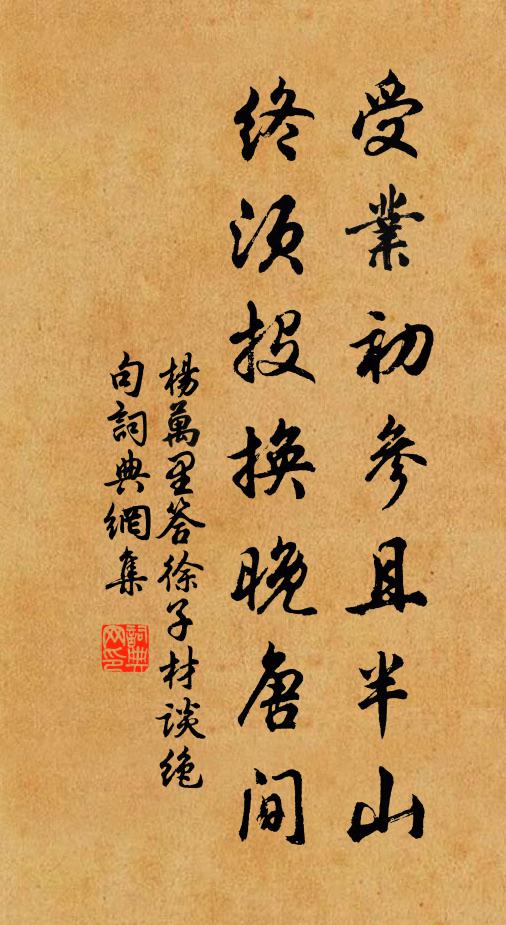 受業初參且半山
終須投換晚唐間
楊萬里答徐子材談絶
句詞典網集
詞典
网印